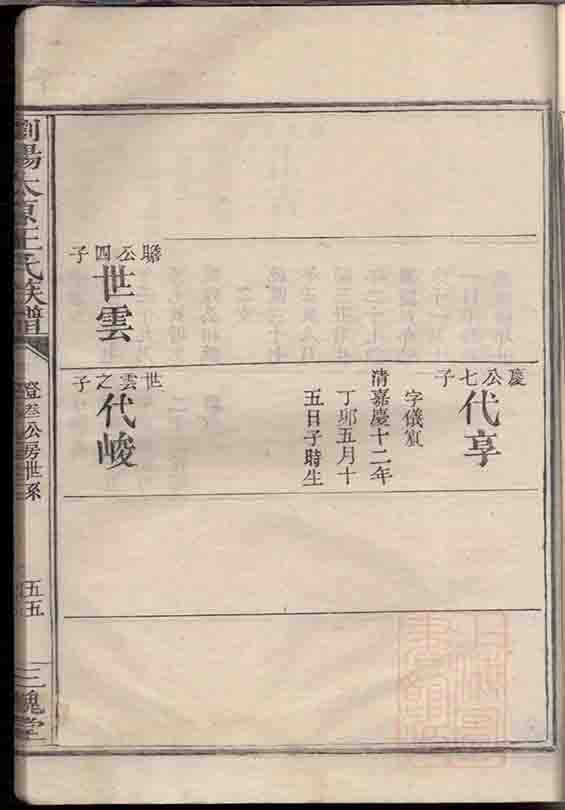 瞻公四子
世雲
慶公七子
代享
字儀賔
清嘉慶十二年
丁卯五月十
五日子時生
世雲之子
代峻
瀏陽太原王氏族譜
登叁公房世系
五五
三槐堂